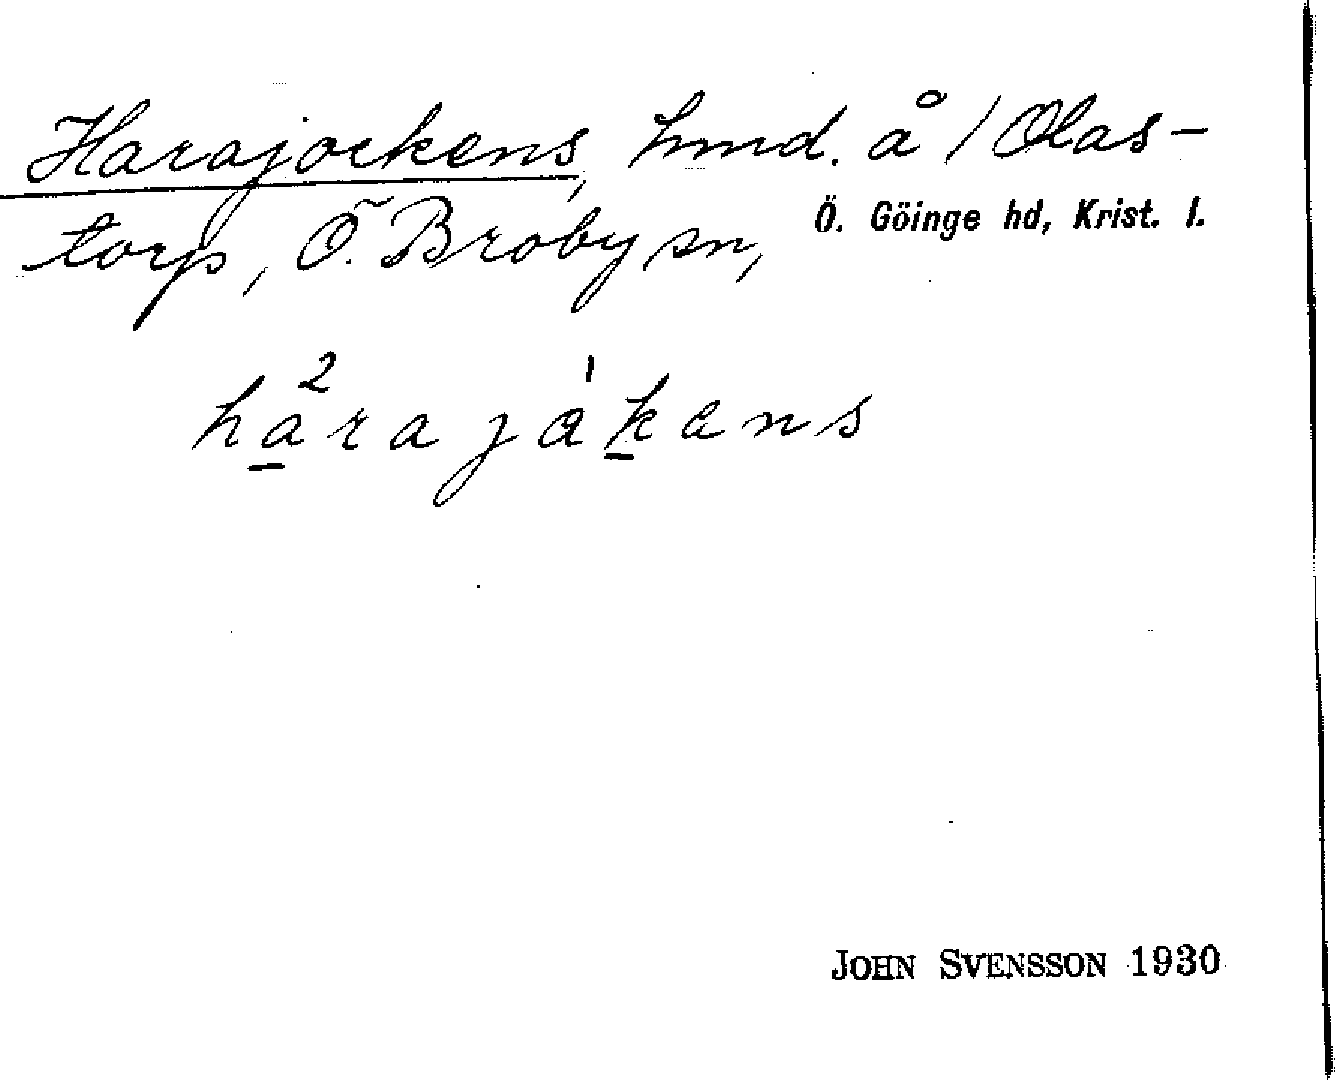 Harajockens, hmd. å / Olas-
torp, Ö. Broby sn,
Ö. Göinge hd, Krist. l.
hàrajákans
2 1
JOHN SVENSSON 1930